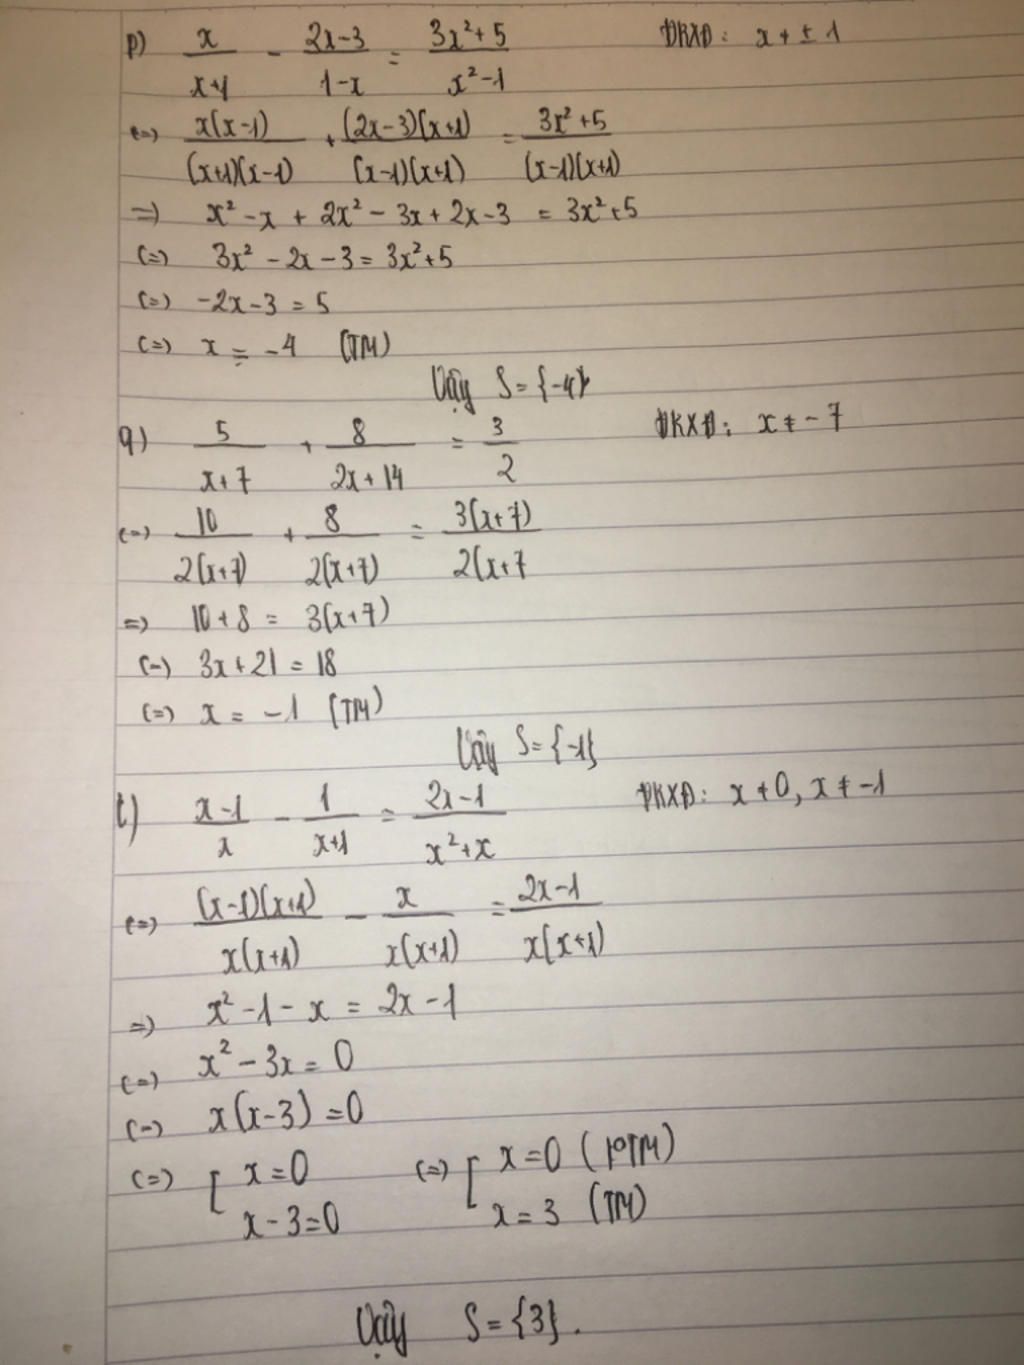 p) x/(x+1) - (2x-3)/(1-x) = (3x²+5)/(x²-1) ĐKXĐ: x ≠ ± 1
(=) x(x-1)/((x+1)(x-1)) + (2x-3)(x+1)/((x-1)(x+1)) = (3x²+5)/((x-1)(x+1))
=) x² - x + 2x² - 3x + 2x - 3 = 3x² + 5
(=) 3x² - 2x - 3 = 3x² + 5
(=) -2x - 3 = 5
(=) x = -4 (TM)
Vậy S = {-4}
q) 5/(x+7) + 8/(2x+14) = 3/2 ĐKXĐ: x ≠ -7
(=) 10/(2(x+7)) + 8/(2(x+7)) = 3(x+7)/(2(x+7
=) 10 + 8 = 3(x+7)
(=) 3x + 21 = 18
(=) x = -1 (TM)
Vậy S = {-1}
t) (x-1)/x - 1/(x+1) = (2x-1)/(x²+x) ĐKXĐ: x ≠ 0, x ≠ -1
(=) (x-1)(x+1)/(x(x+1)) - x/(x(x+1)) = (2x-1)/(x(x+1))
=) x² - 1 - x = 2x - 1
(=) x² - 3x = 0
(=) x(x-3) = 0
(=) [ x = 0 (=) [ x = 0 (KTM)
x - 3 = 0 x = 3 (TM)
Vậy S = {3}.